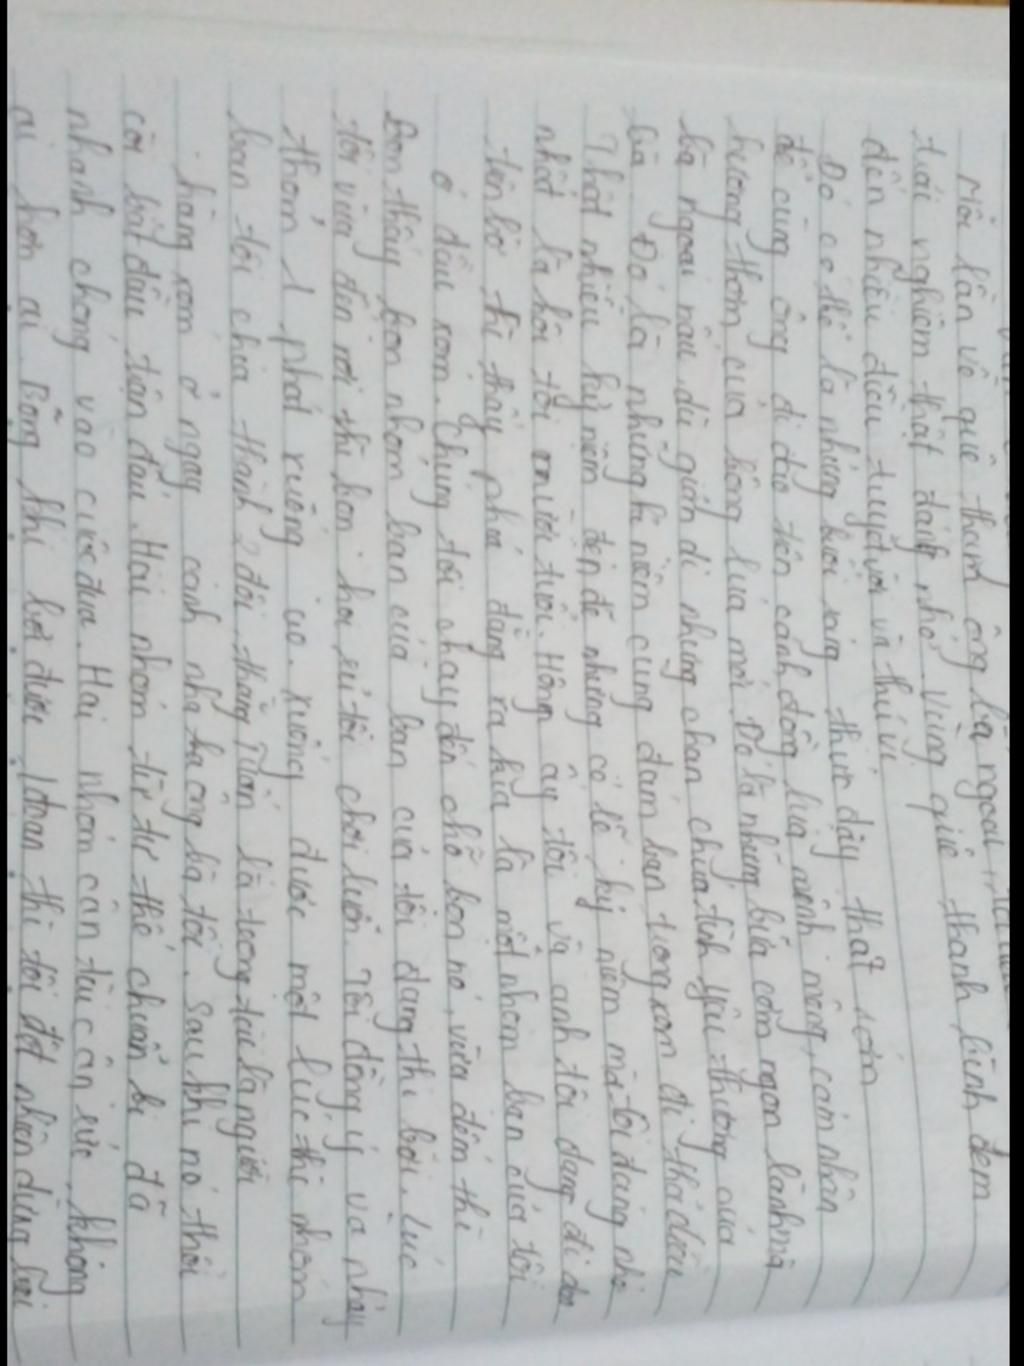 Mỗi lần về quê thăm ông bà ngoại
trải nghiệm thật đáng nhớ. Vùng quê thanh bình đem
đến nhiều điều tuyệt vời và thú vị
Đó có thể là những buổi sáng thức dậy thật sớm
để cùng ông đi dạo trên cánh đồng lúa mênh mông, cảm nhận
hương thơm của bông lúa mới. Đó là những bữa cơm ngon lành mà
bà ngoại nấu, dù giản dị nhưng chan chứa tình yêu thương của
bà. Đó là những kỉ niệm cùng đám bạn trong xóm đi thả diều
Thật nhiều kỷ niệm đẹp đẽ nhưng có lẽ kỷ niệm mà tôi đáng nhớ
nhất là hồi tôi mười tuổi. Hôm ấy tôi và anh tôi đang đi dạo
trên bờ thì thấy phía đằng xa kia là một nhóm bạn của tôi
ở đầu xóm. Chúng tôi chạy đến chỗ bọn nó, vừa đến thì
bọn thấy bọn nhóm bạn của bạn của tôi đang thi bơi. Lúc
tôi vừa đến nơi thì bọn rủ tôi chơi luôn. Tôi đồng ý và nhảy
1 phát xuống ao. Xuống được một lúc thì nhóm
bạn tôi chia thành 2 đội, thằng Tuấn là trọng tài là người
hàng xóm ở ngay cạnh nhà ông bà tôi. Sau khi nó thổi
còi bắt đầu trận đấu. Hai nhóm từ tư thế chuẩn bị đã
nhanh chóng vào cuộc đua. Hai nhóm cân tài cân sức, không
ai hơn ai. Bỗng khi bơi được 1 đoạn thì tôi đột nhiên dừng lại